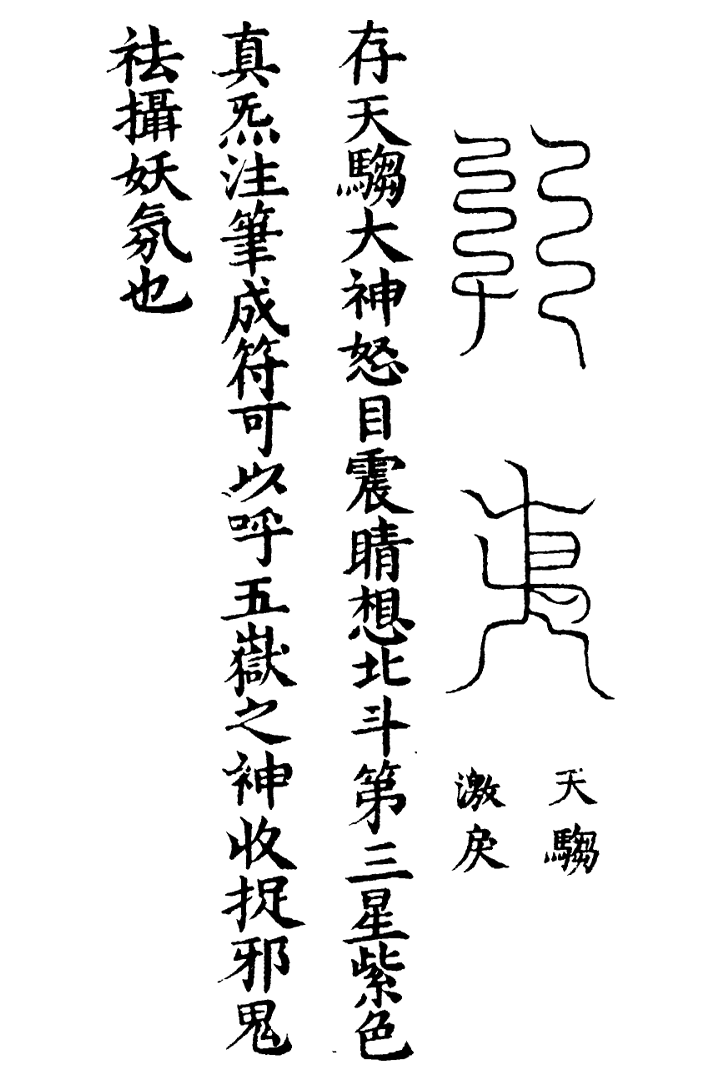 天騶
激戾
存天騶大神怒目震睛想北斗第三星紫色
真炁注筆成符可以呼五嶽之神收捉邪鬼
祛攝妖氛也